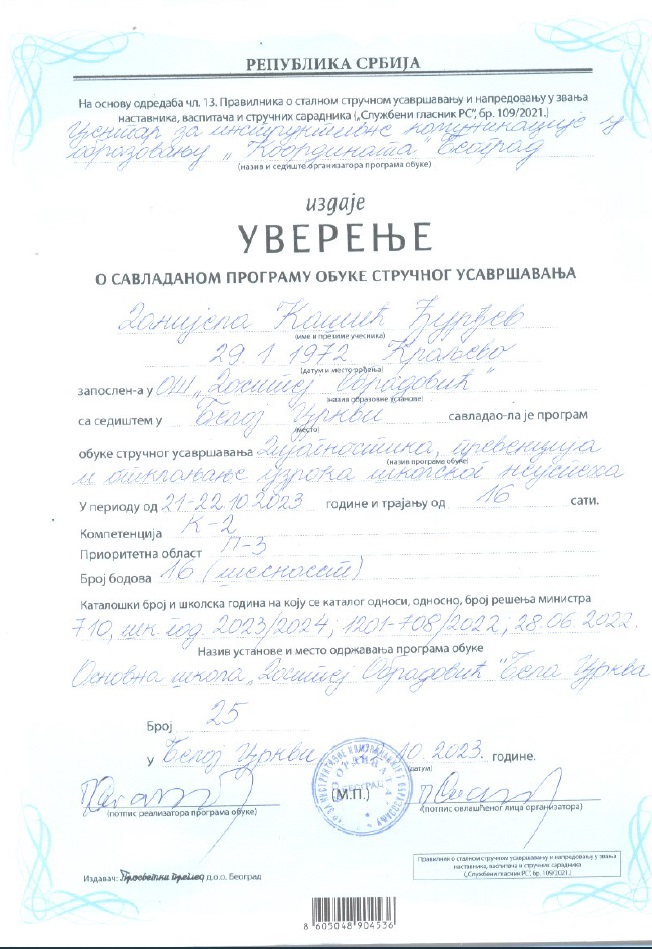 РЕПУБЛИКА СРБИЈА
На основу одредаба чл. 13. Правилника о сталном стручном усавршавању и напредовању у звања
наставника, васпитача и стручних сарадника („Службени гласник РС“, бр. 109/2021.)
Центар за инструктивне комуникације у
образовању „Координата“ Београд
(назив и седиште организатора програма обуке)
издаје
УВЕРЕЊЕ
О САВЛАДАНОМ ПРОГРАМУ ОБУКЕ СТРУЧНОГ УСАВРШАВАЊА
Данијела Ђурђев
(име и презиме учесника)
29 1 1972 Краљево
(датум и место рођења)
запослен-а у ОШ „Доситеј Обрадовић“
(назив образовне установе)
са седиштем у Белој Цркви савладао-ла је програм
(место)
обуке стручног усавршавања Дијагностика, превенција
(назив програма обуке)
и отклањање узрока школског неуспеха
У периоду од 21-22 10 2023 године и трајању од 16 сати.
Компетенција К-2
Приоритетна област П-3
Број бодова 16 (шеснаест)
Каталошки број и школска година на коју се каталог односи, односно, број решења министра
710, шк. год. 2023/2024; 1201-708/2022; 28.06.2022.
Назив установе и место одржавања програма обуке
Основна школа „Доситеј Обрадовић“ Бела Црква
Број 25
у Белој Цркви 10. 2023. године.
(датум)
(М.П.)
(потпис реализатора програма обуке)
(потпис овлашћеног лица организатора)
Правилник о сталном стручном усавршавању и напредовању у звања
наставника, васпитача и стручних сарадника
(„Службени гласник РС“, бр. 109/2021.)
Издавач: Просветни преглед д.о.о. Београд
8 605048 904536